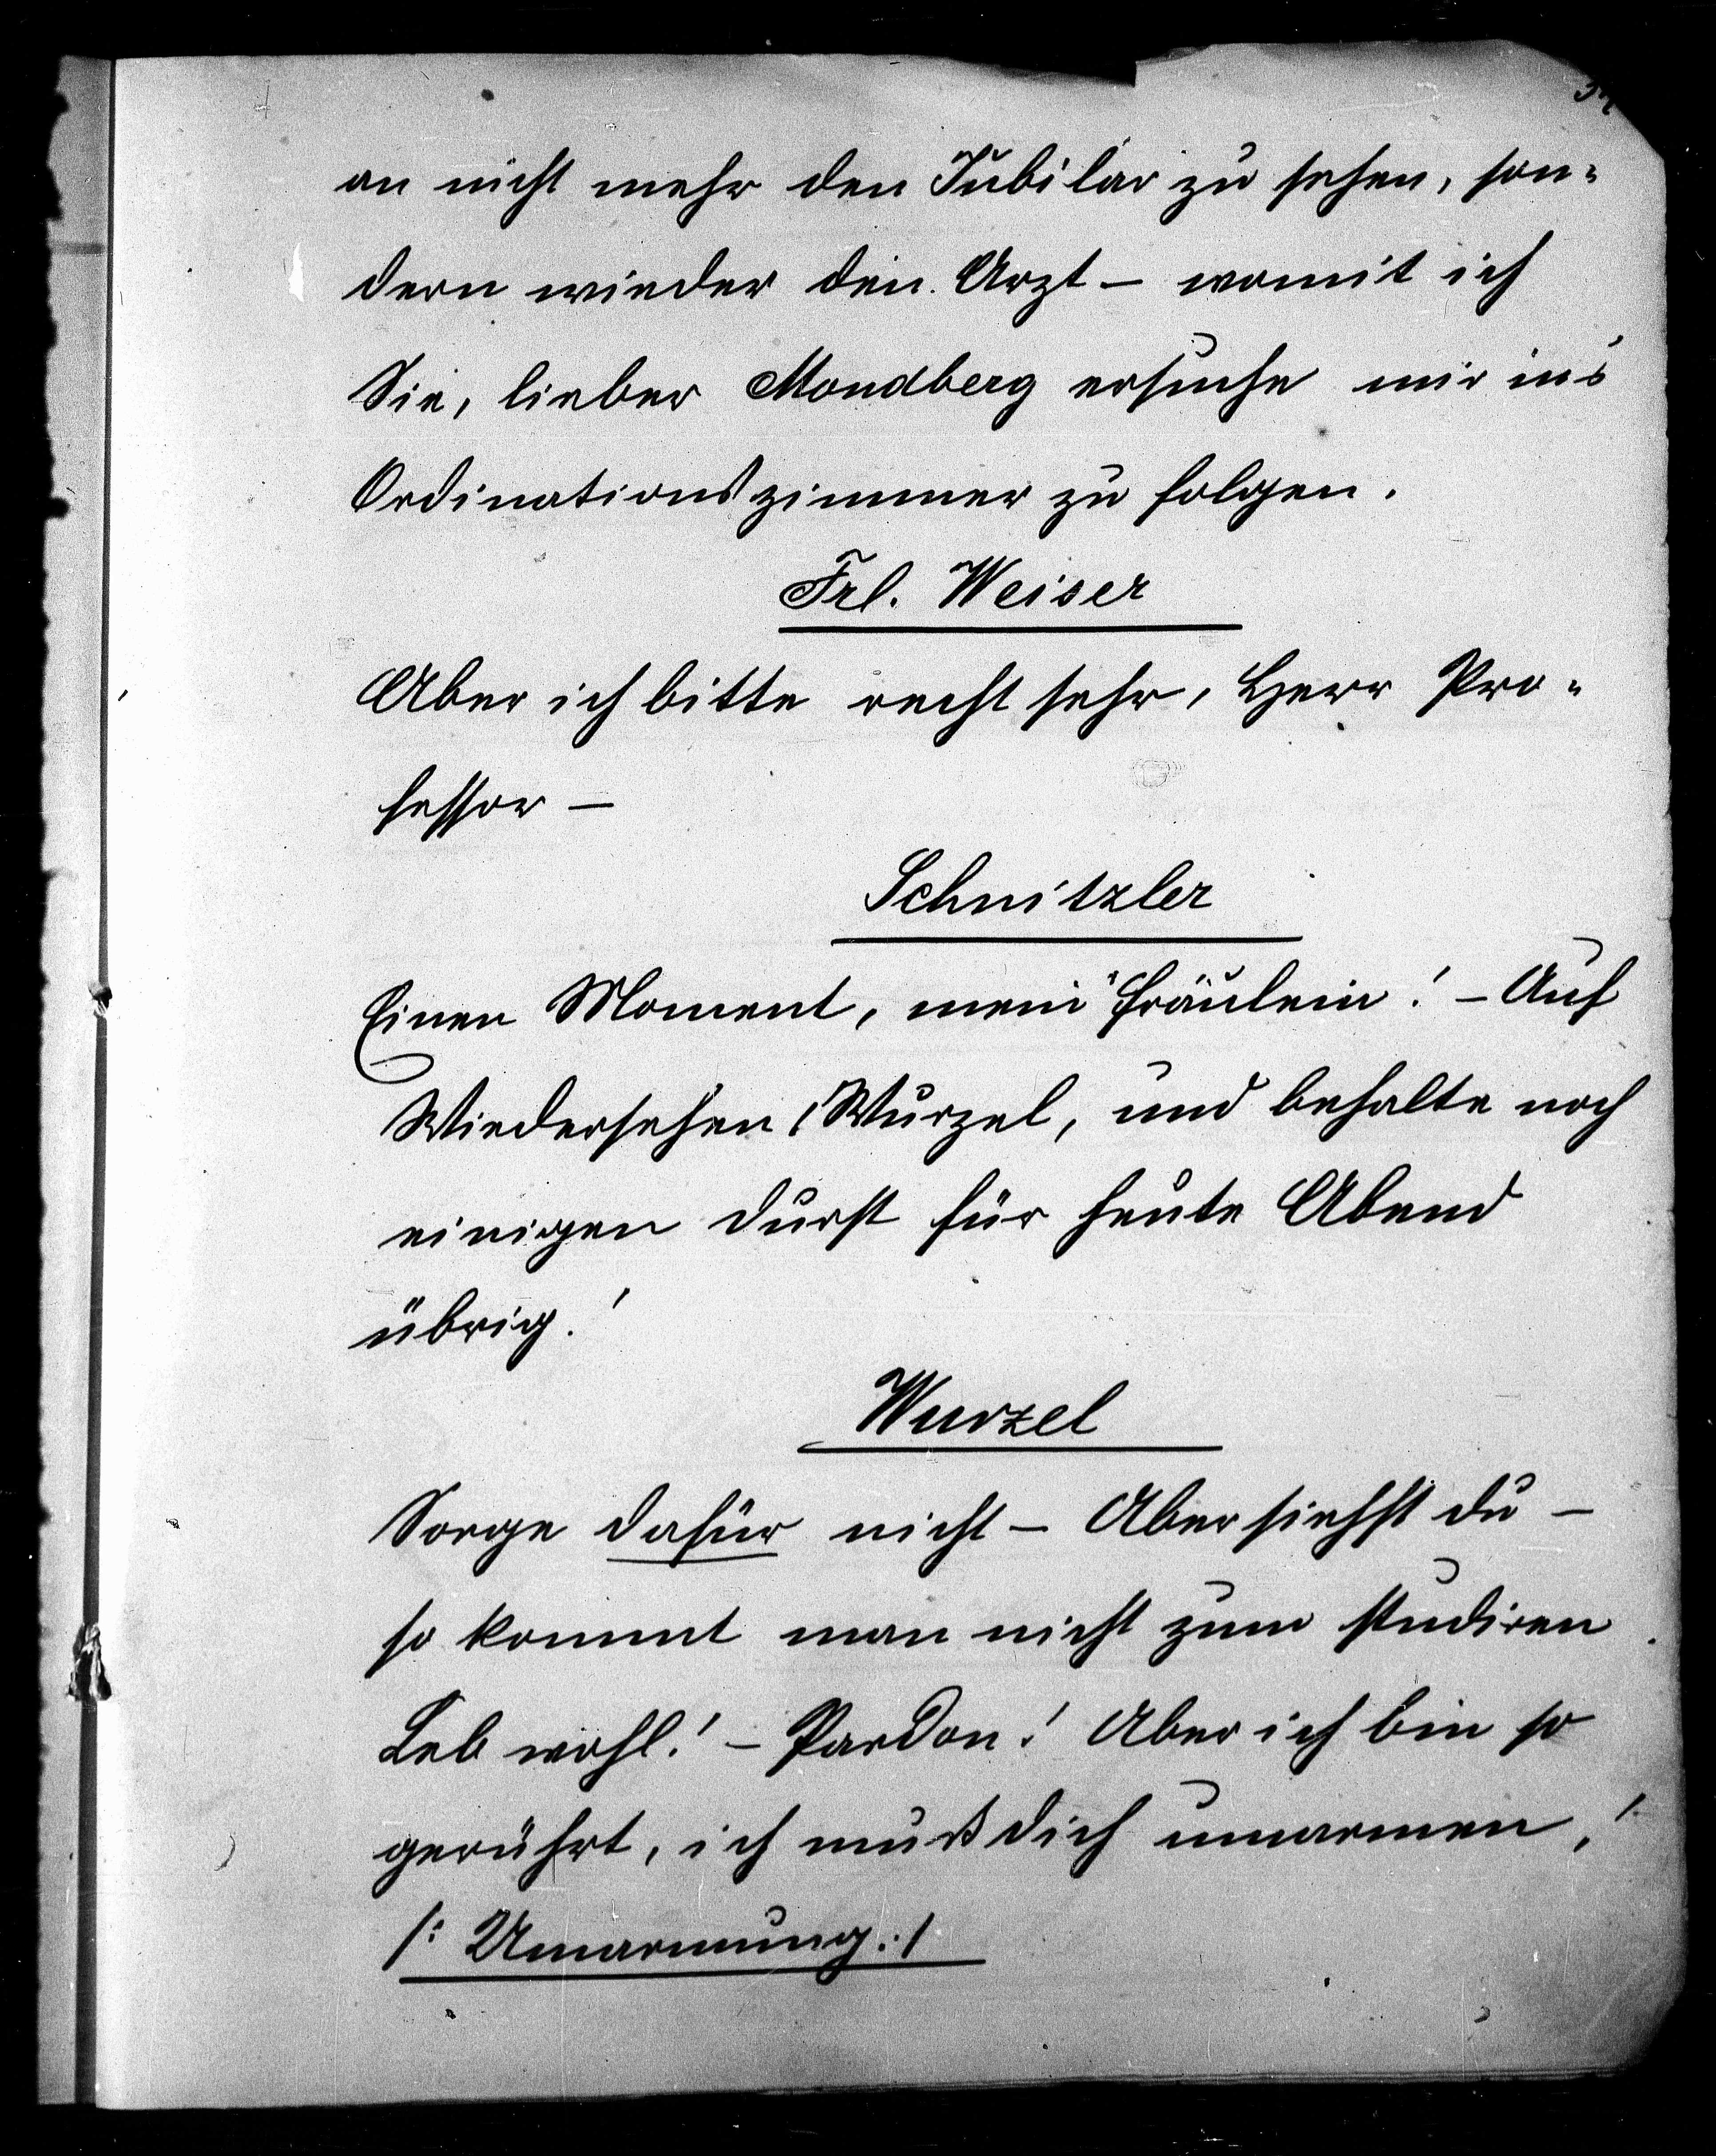 an nicht mehr den Jubilar zu sehen, son-
dern wieder den Arzt – womit ich
Sie, lieber Mondberg ersuche mir in's
Ordinationszimmer zu folgen.
Frl. Weiser
Aber ich bitte recht sehr, Herr Pro-
fessor –
Schnitzler
Einen Moment, mein Fräulein! – Auf
Wiedersehen, Wurzel, und behalte noch
einigen Durst für heute Abend
übrig!
Wurzel
Sorge dafür nicht – Aber siehst du –
so kommt man nicht zum studiren.
Leb wohl! – Pardon! Aber ich bin so
gerührt, ich muß dich umarmen!
/: Umarmung :/